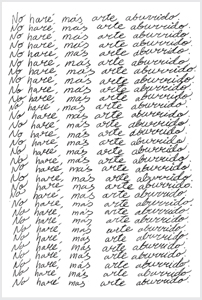 No haré, más arte aburrido.
No haré, más arte aburrido.
No haré, más arte aburrido.
No haré, más arte aburrido.
No haré, más arte aburrido.
No haré, más arte aburrido.
No haré, más arte aburrido.
No haré, más arte aburrido.
No haré, más arte aburrido.
No haré, más arte aburrido.
No haré, más arte aburrido.
No haré, más arte aburrido.
No haré, más arte aburrido.
No haré, más arte aburrido.
No haré, más arte aburrido.
No haré, más arte aburrido.
No haré, más arte aburrido.
No haré, más arte aburrido.
No haré, más arte aburrido.
No haré, más arte aburrido.
No haré, más arte aburrido.
No haré, más arte aburrido.
No haré, más arte aburrido.
No haré, más arte aburrido.
No haré, más arte aburrido.
No haré, más arte aburrido.
No haré, más arte aburrido.
No haré, más arte aburrido.